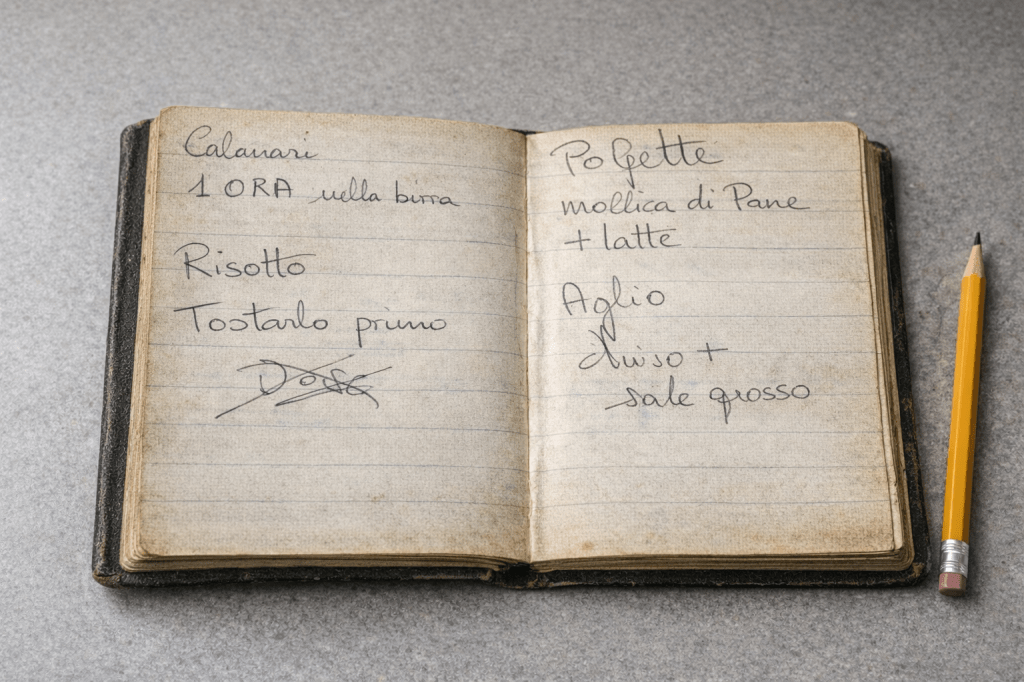 Calamari
1 ORA nella birra
Risotto
Tostarlo primo
Polpette
mollica di Pane
+ latte
Aglio
sale grosso